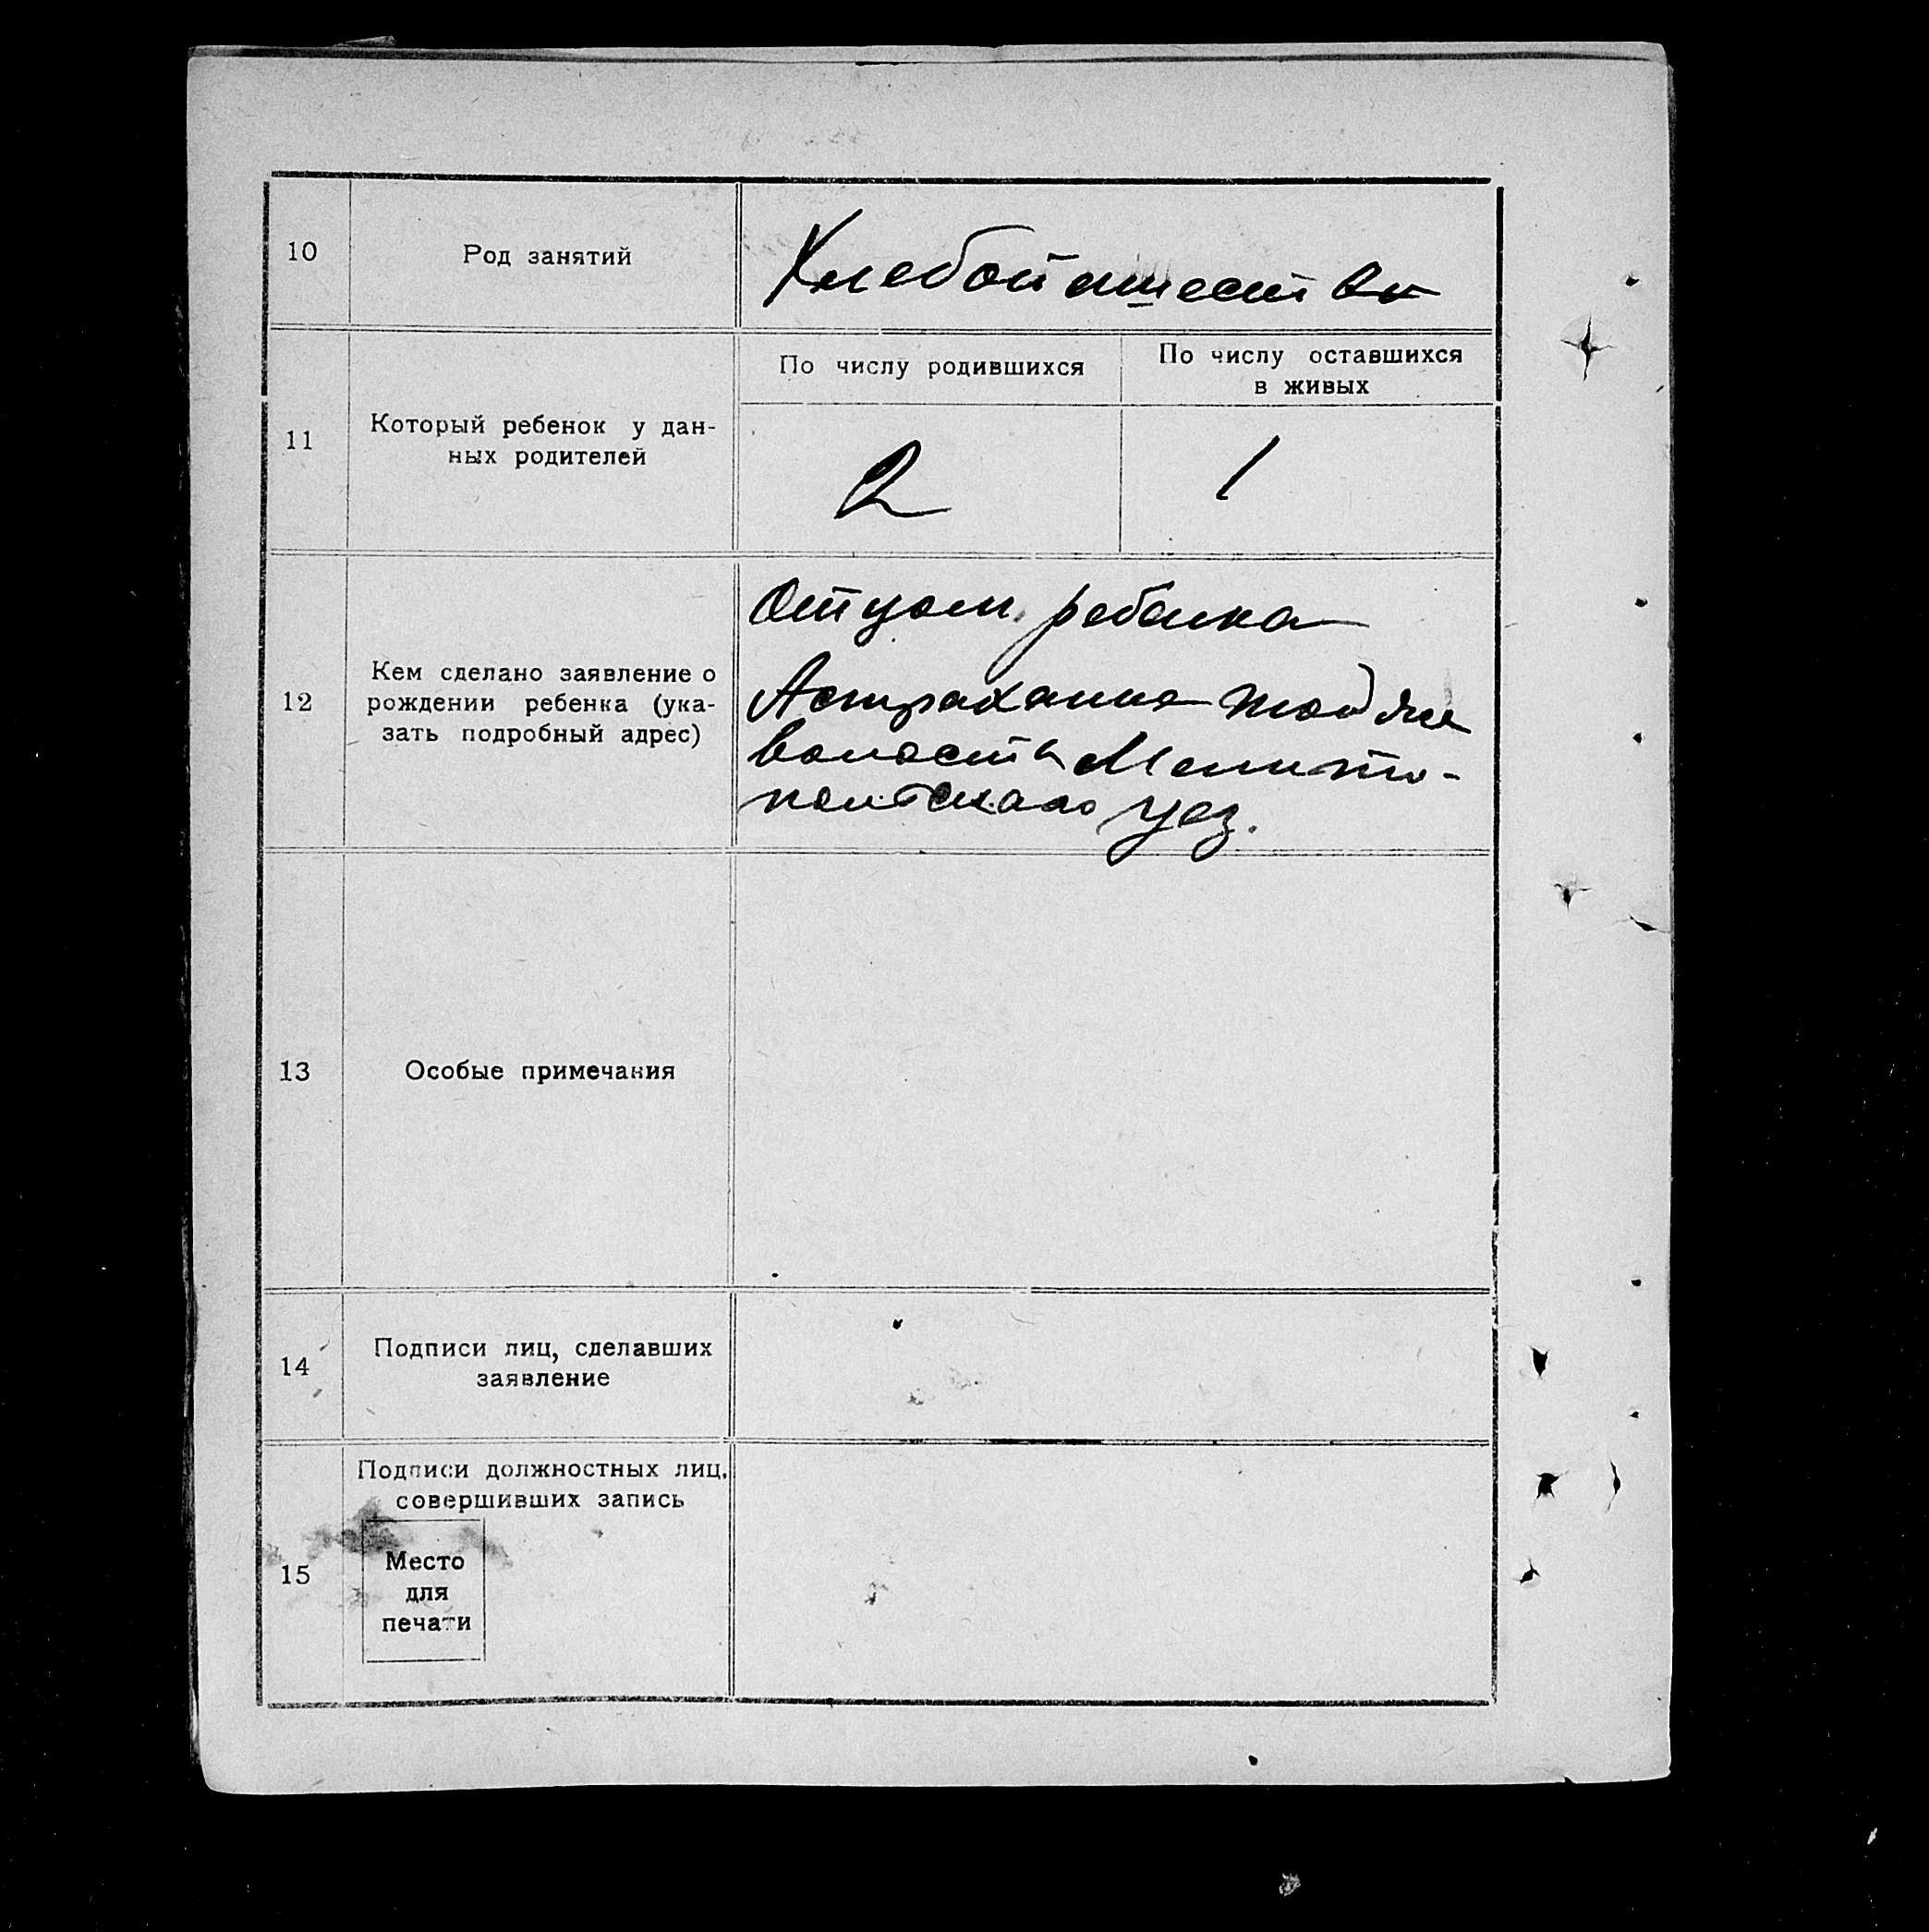 10
Род занятий
Хлебопашество
11
Который ребенок у дан-
ных родителей
По числу родившихся
По числу оставшихся
в живых
2
1
12
Кем сделано заявление о
рождении ребенка (ука-
зать подробный адрес)
Отцом ребенка
Астраханка той же
волости Мелито-
польскаго уез.
13
Особые примечания
14
Подписи лиц, сделавших
заявление
15
Подписи должностных лиц,
совершивших запись
Место
для
печати